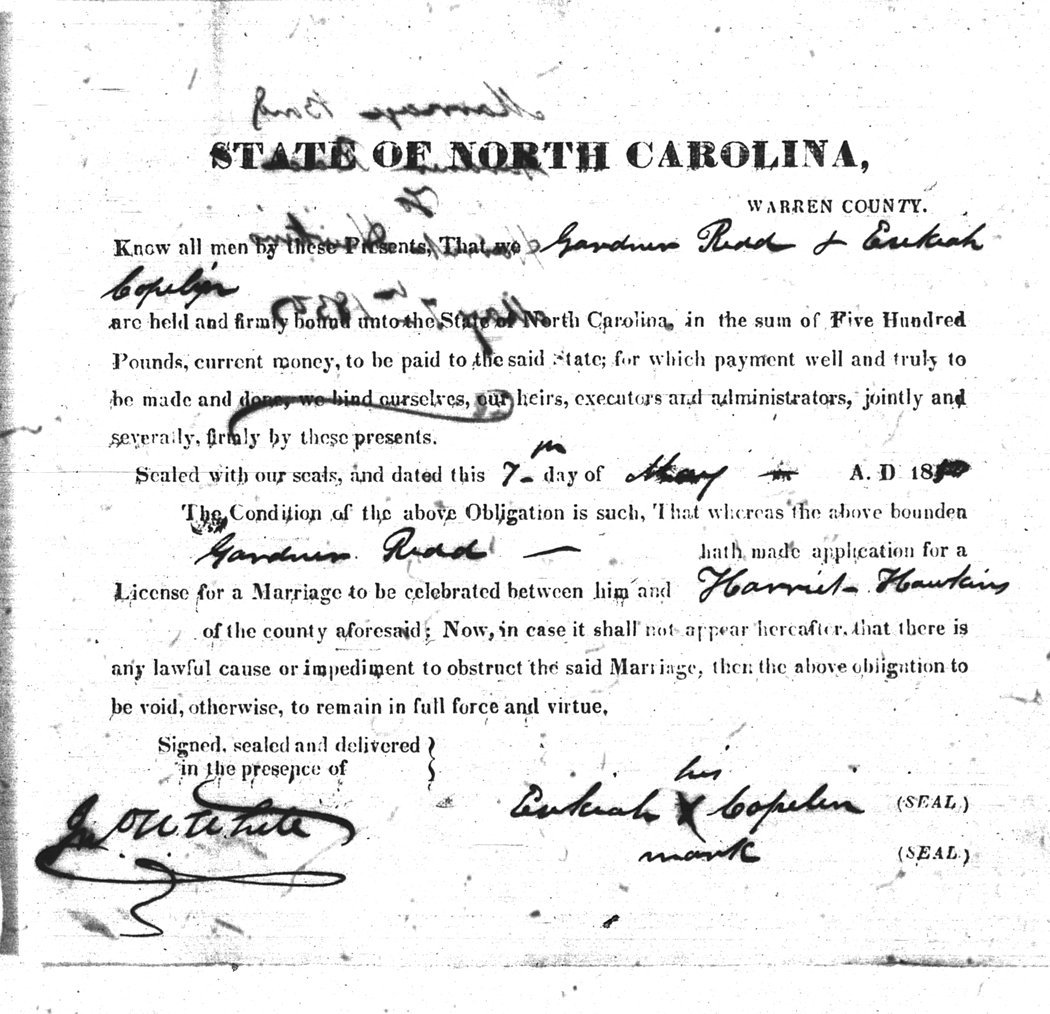 STATE OF NORTH CAROLINA,
WARREN COUNTY.
Know all men by these Presents, That we Gardner Redd & Ezekiah
Copelin
are held and firmly bound unto the State of North Carolina, in the sum of Five Hundred
Pounds, current money, to be paid to the said State; for which payment well and truly to
be made and done, we bind ourselves, our heirs, executors and administrators, jointly and
severally, firmly by these presents.
Sealed with our seals, and dated this 7th day of May A. D 18
The Condition of the above Obligation is such, That whereas the above bounden
Gardner Redd — hath made application for a
License for a Marriage to be celebrated between him and Harriet Hawkins
of the county aforesaid; Now, in case it shall not appear hereafter, that there is
any lawful cause or impediment to obstruct the said Marriage, then the above obligation to
be void, otherwise, to remain in full force and virtue.
Signed, sealed and delivered }
in the presence of
his
Ezekiah X Copelin (SEAL)
mark (SEAL)
White